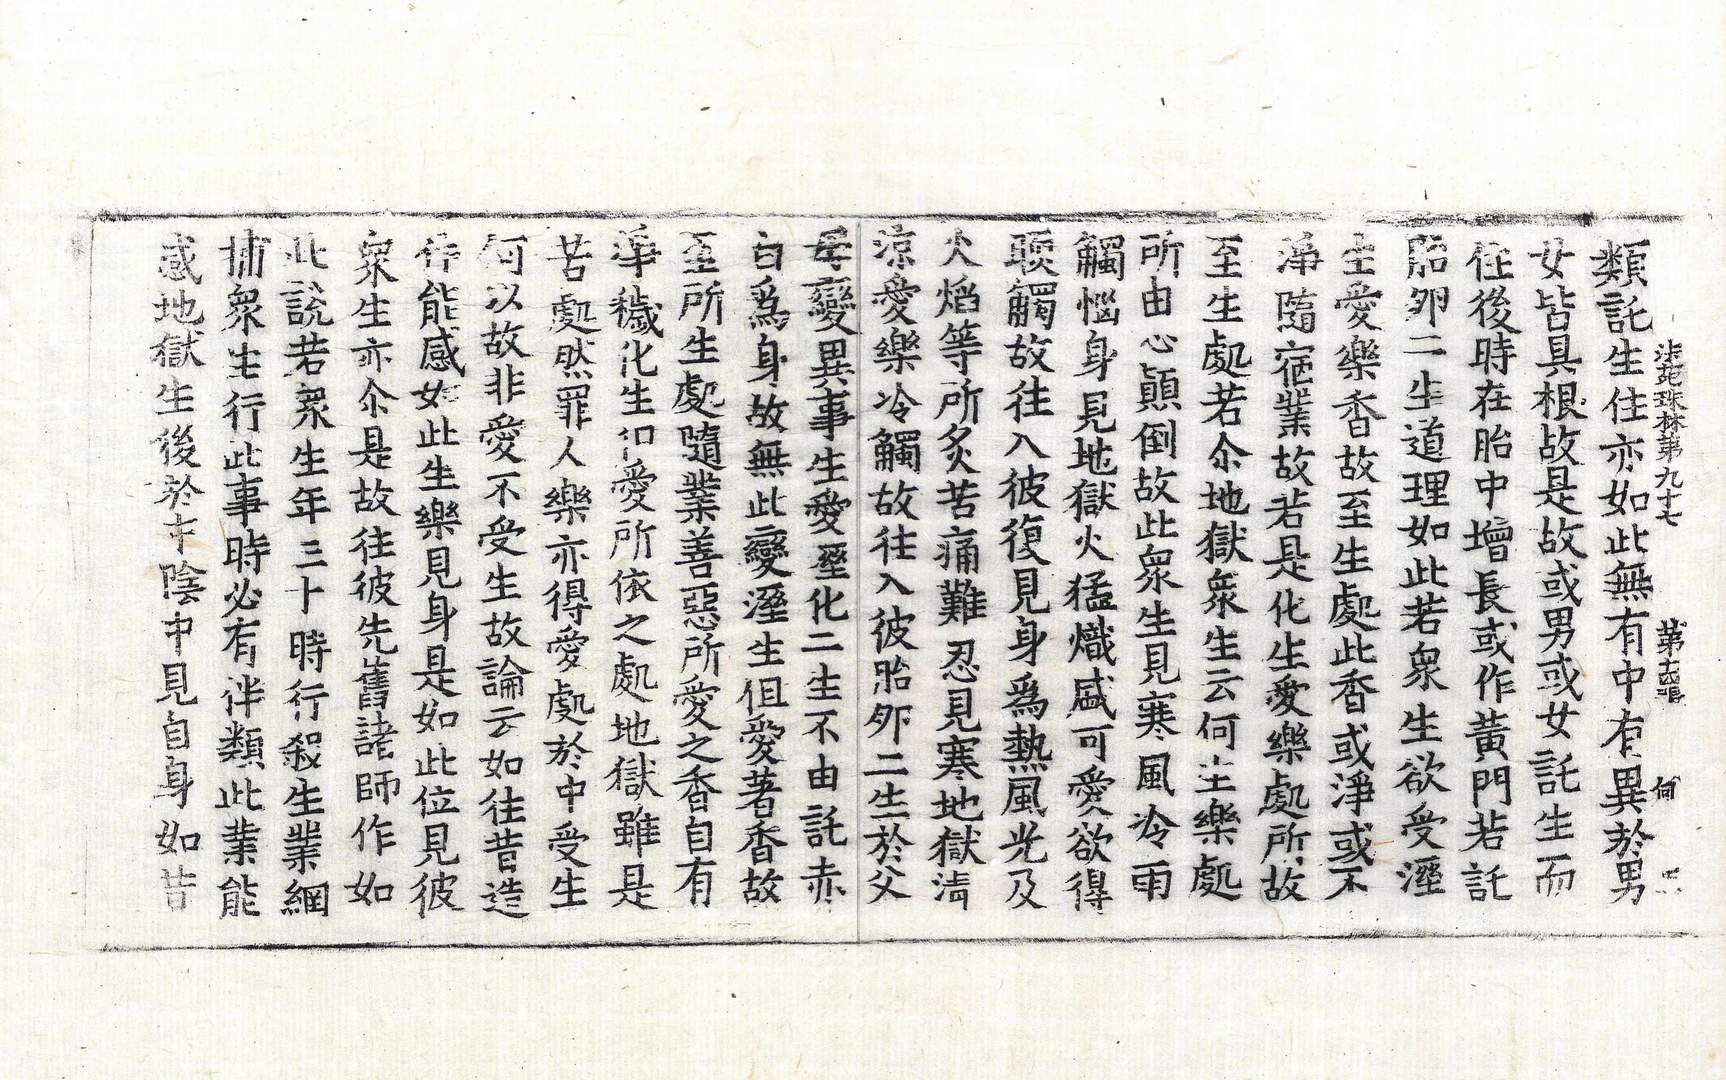 法苑珠林第九十七 第十六張 何
類託生住亦如此無有中有異於男
女皆具根故是故或男或女託生而
住後時在胎中增長或作黃門若託
胎卵二生道理如此若衆生欲受溼
生愛樂香故至生處此香或淨或不
淨隨宿業故若是化生愛樂處所故
至生處若尒地獄衆生云何生樂處
所由心顛倒故此衆生見寒風冷雨
觸惱身見地獄火猛熾盛可愛欲得
暖觸故往入彼復見身爲熱風光及
火焰等所炙苦痛難忍見寒地獄清
涼愛樂冷觸故往入彼胎卵二生於父
母變異事生愛溼化二生不由託赤
白爲身故無此變溼生但愛著香故
至所生處隨業善惡所愛之香自有
華穢化生但愛所依之處地獄雖是
苦處然罪人樂亦得愛處於中受生
何以故非愛不受生故論云如往昔造
作能感如此生樂見身是如此位見彼
衆生亦尒是故往彼先舊諸師作如
此說若衆生年三十時行殺生業網
捕衆生行此事時必有伴類此業能
感地獄生後於中陰中見自身如昔